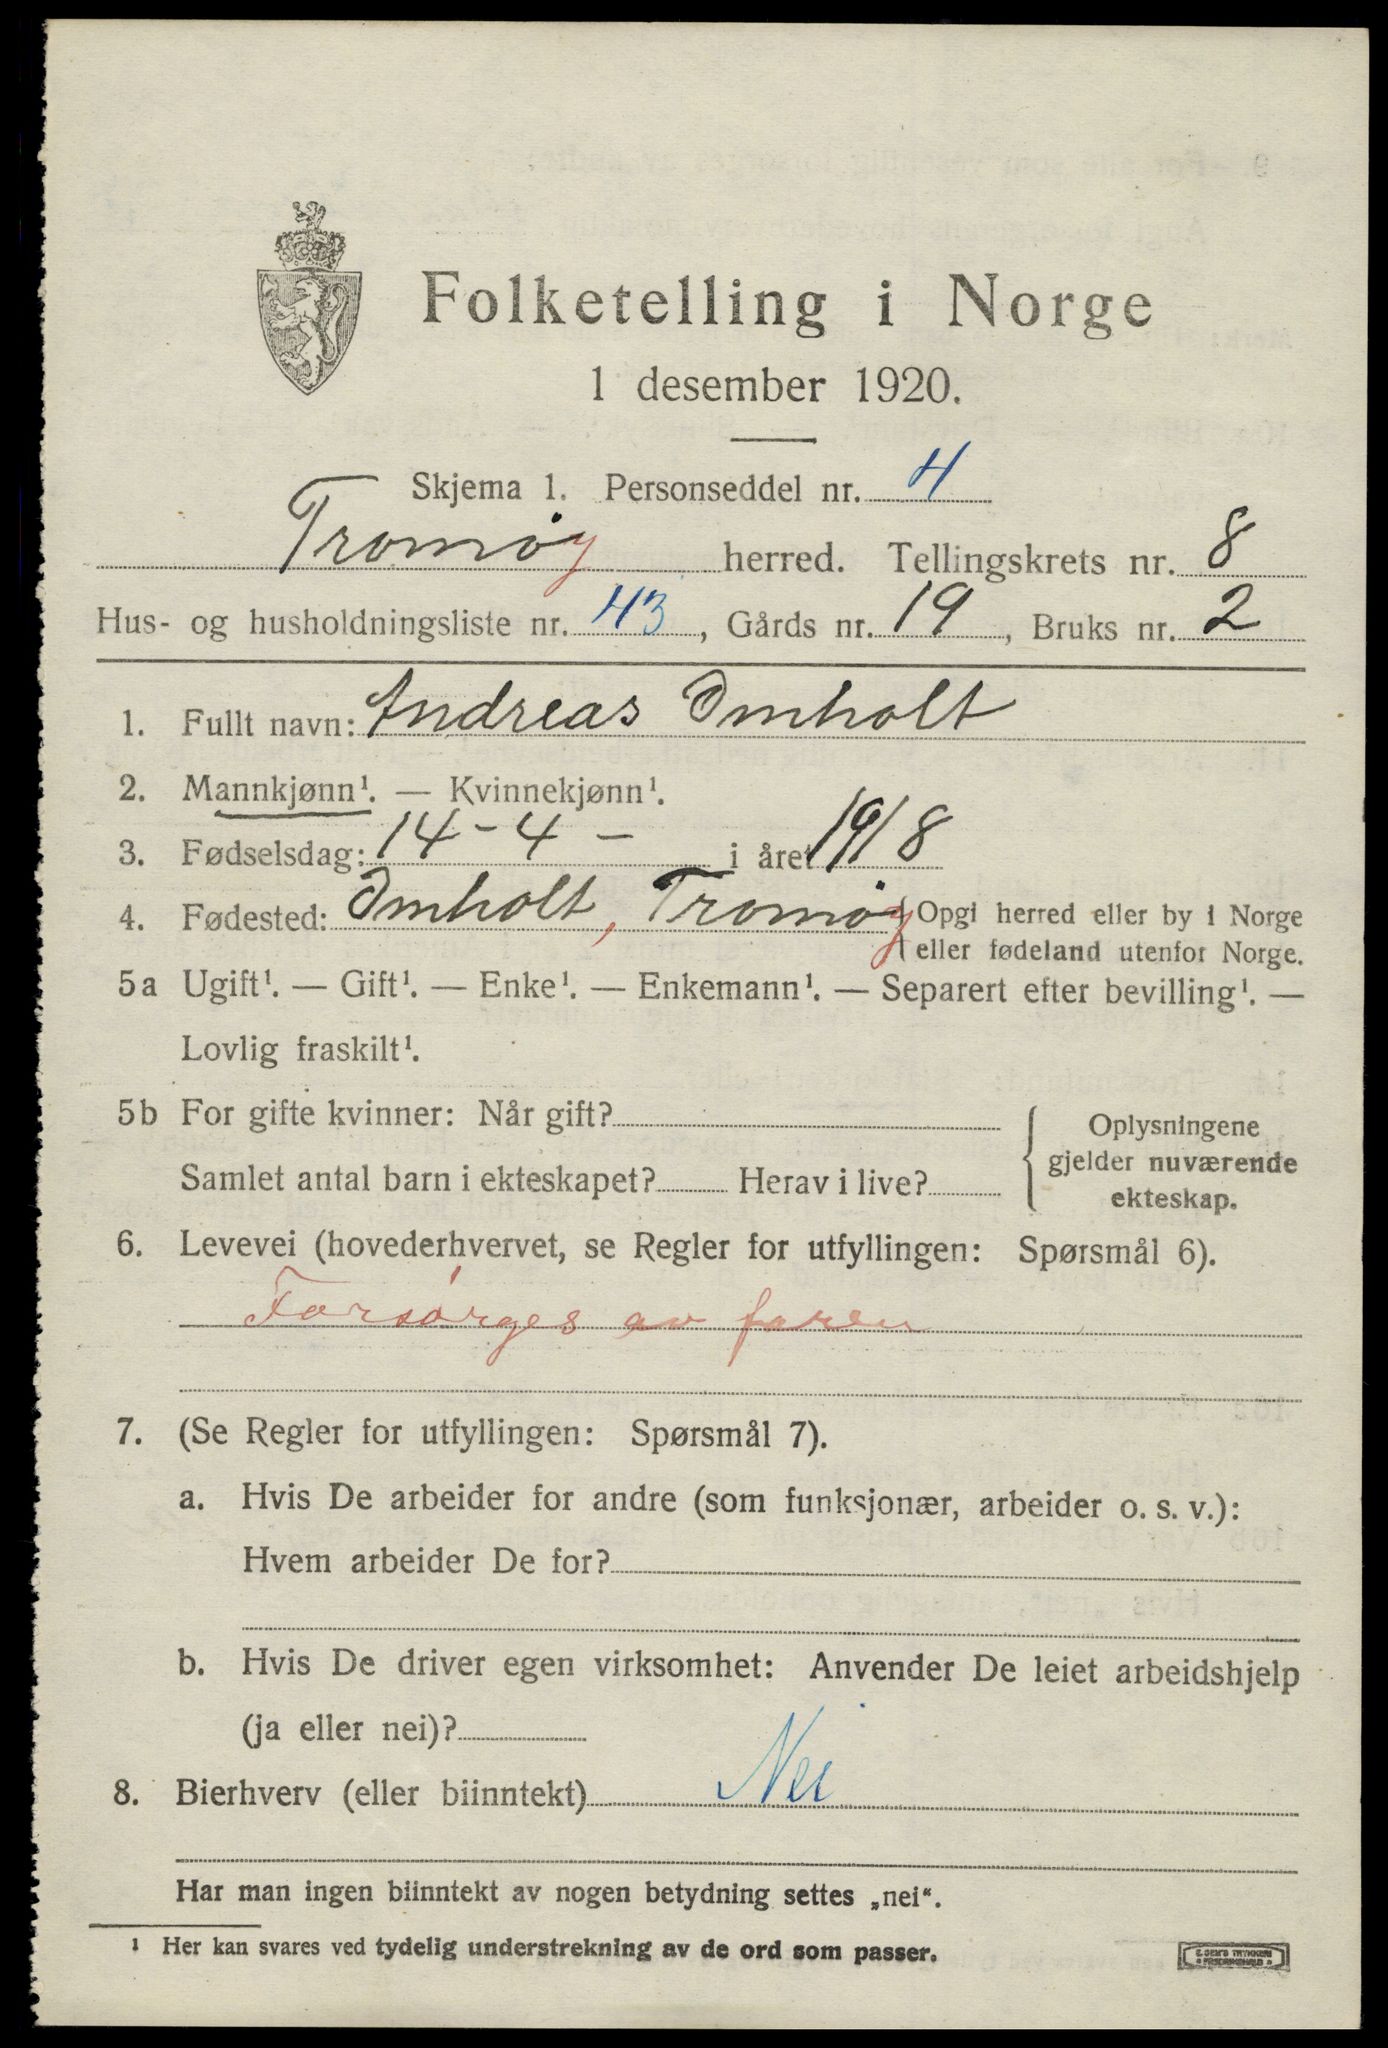 Folketelling i Norge
1 desember 1920.
Skjema 1. Personseddel nr. 4
Tromøy herred. Tellingskrets nr. 8
Hus- og husholdningsliste nr. 43, Gårds nr. 19, Bruks nr. 2
1. Fullt navn: Andreas Omholt
2. Mannkjønn¹. — Kvinnekjønn¹.
3. Fødselsdag: 14-4- i året 1918
4. Fødested: Omholt, Tromøy { Opgi herred eller by i Norge
eller fødeland utenfor Norge.
5a Ugift¹. — Gift¹. — Enke¹. — Enkemann¹. — Separert efter bevilling¹. —
Lovlig fraskilt¹.
5b For gifte kvinner: Når gift?
Samlet antal barn i ekteskapet? Herav i live?
{ Oplysningene
gjelder nuværende
ekteskap.
6. Levevei (hovederhvervet, se Regler for utfyllingen: Spørsmål 6).
Forsørges av faren
7. (Se Regler for utfyllingen: Spørsmål 7).
a. Hvis De arbeider for andre (som funksjonær, arbeider o. s. v.):
Hvem arbeider De for?
b. Hvis De driver egen virksomhet: Anvender De leiet arbeidshjelp
(ja eller nei)?
8. Bierhverv (eller biinntekt) Nei
Har man ingen biinntekt av nogen betydning settes „nei“.
¹ Her kan svares ved tydelig understrekning av de ord som passer.